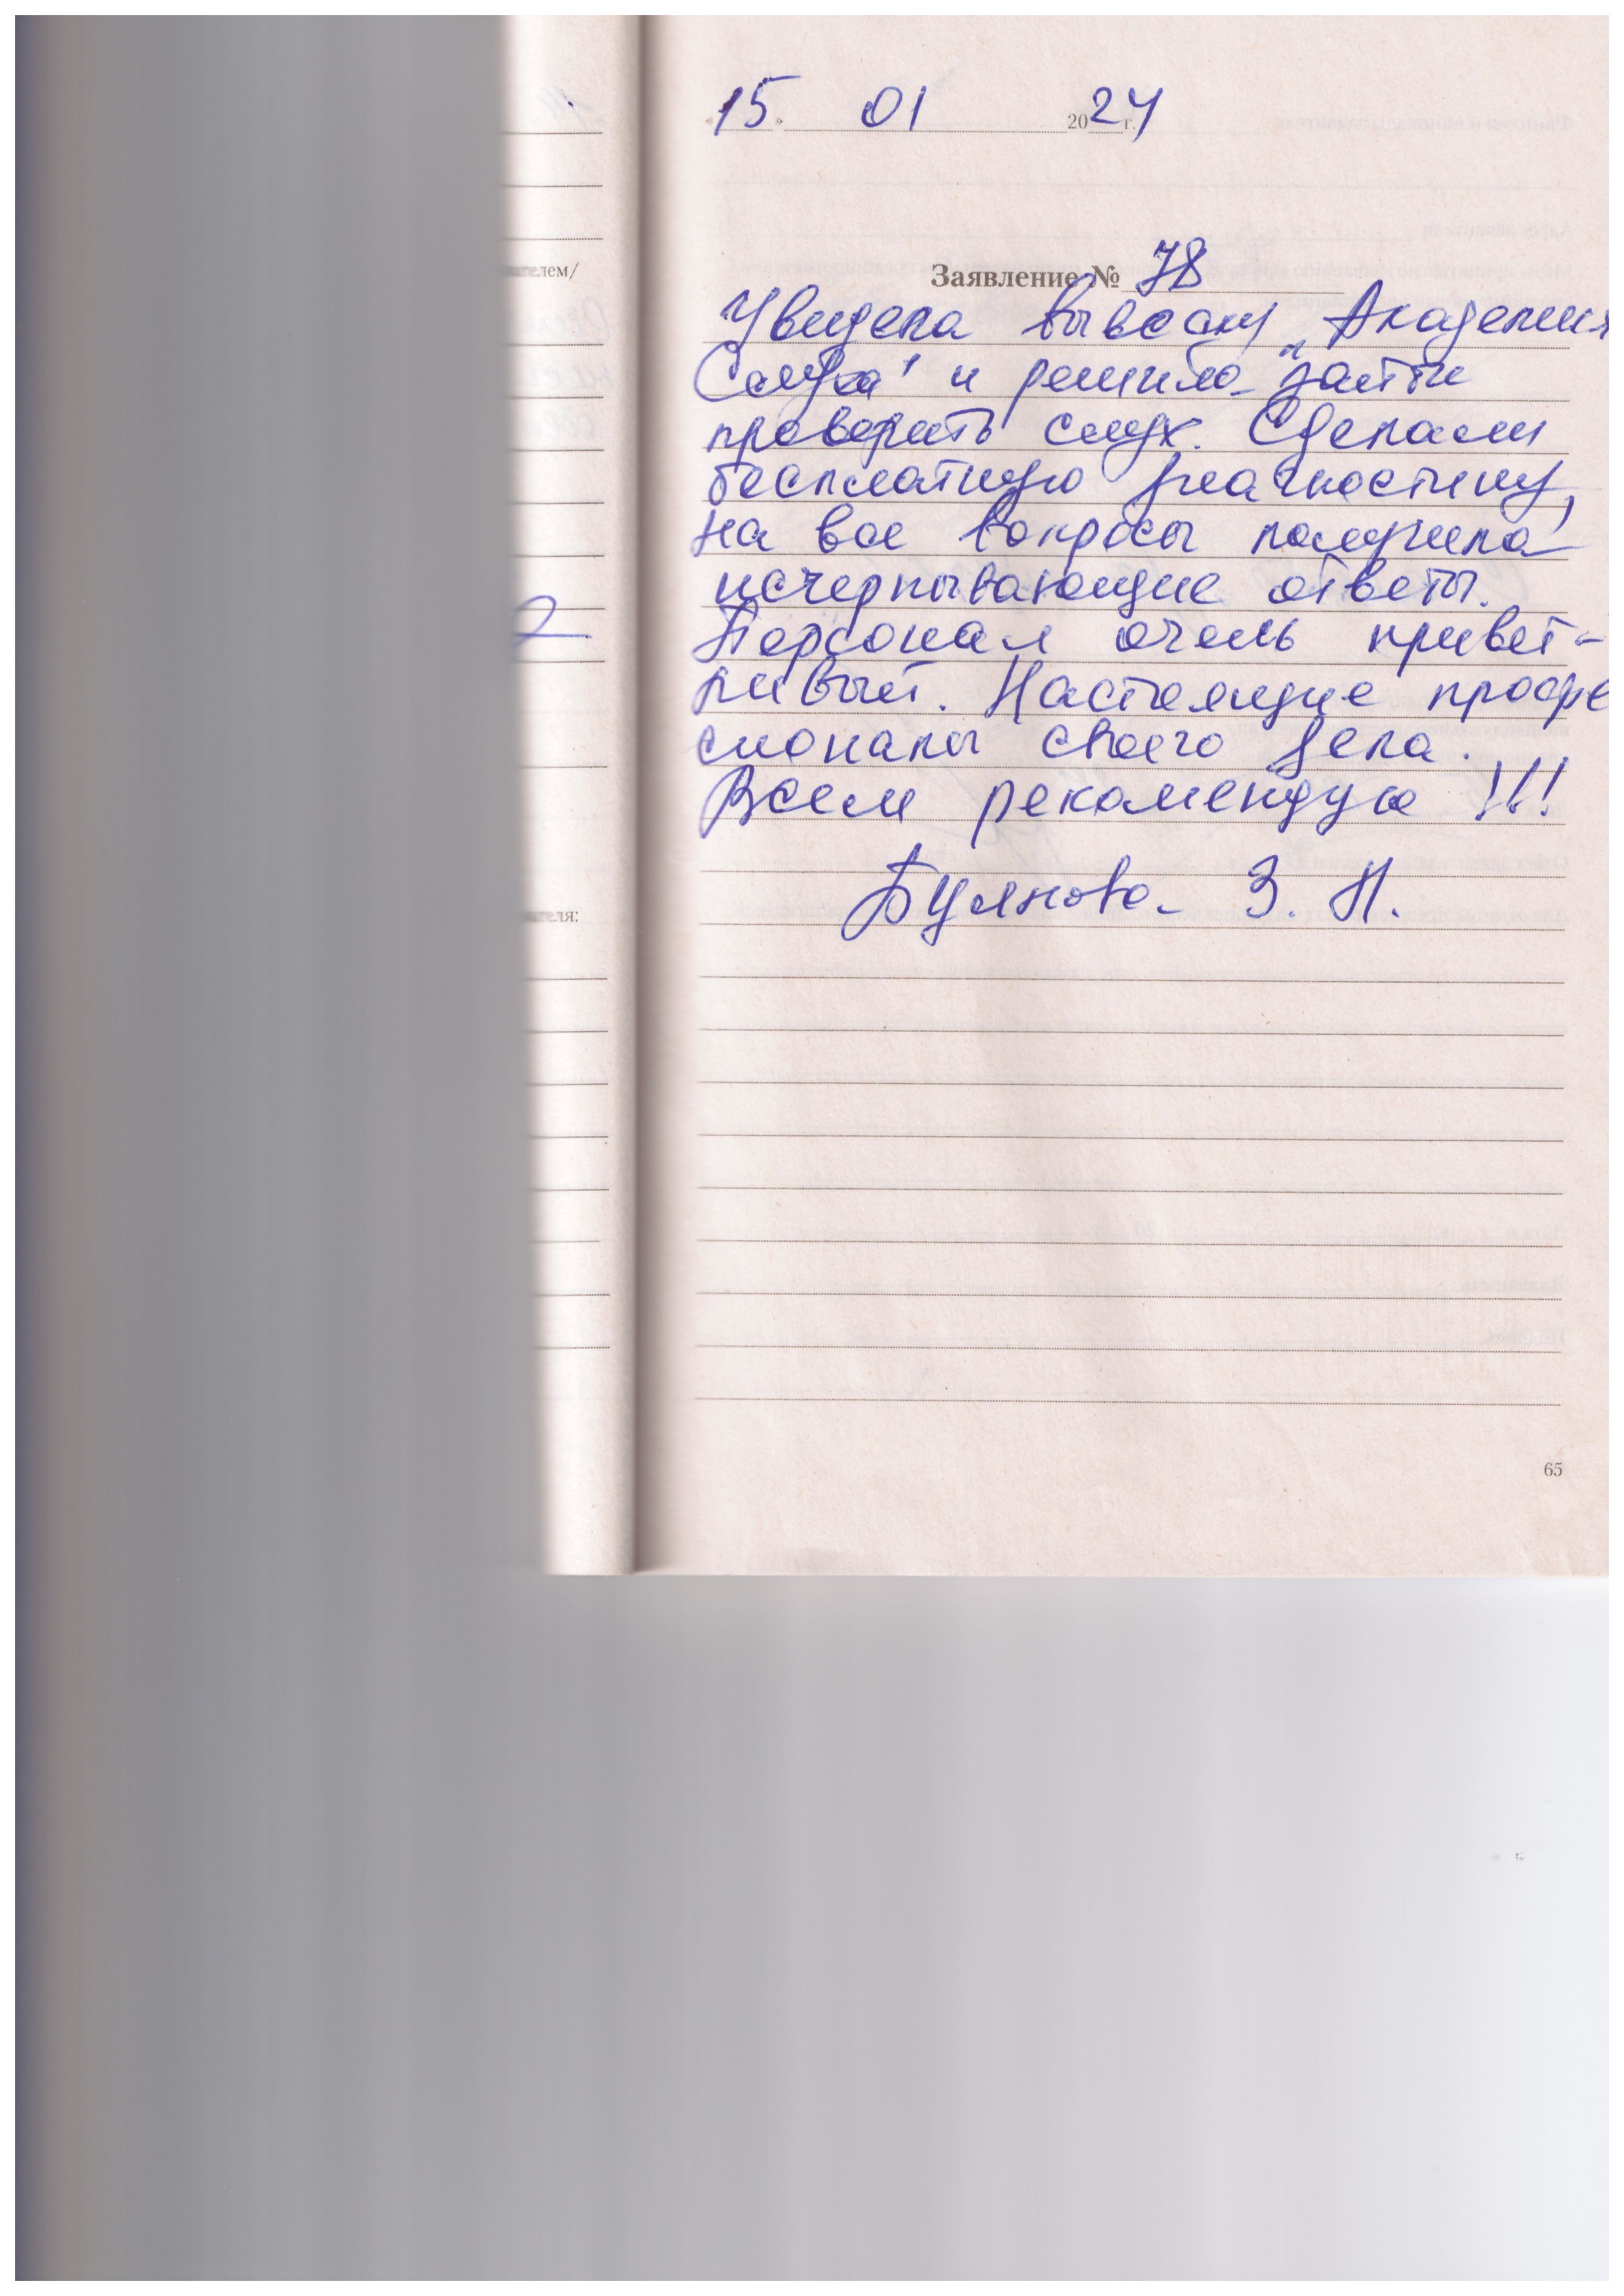 «15» 01 2024 г.
Заявление № 78
Увидела вывеску „Академия
Слуха" и решила зайти
проверить слух. Сделали
бесплатную диагностику,
на все вопросы получила
исчерпывающие ответы.
Персонал очень привет-
ливый. Настоящие профе
сионалы своего дела.
Всем рекомендую !!!
Буянова З. Н.
65
ателем/
ателя: